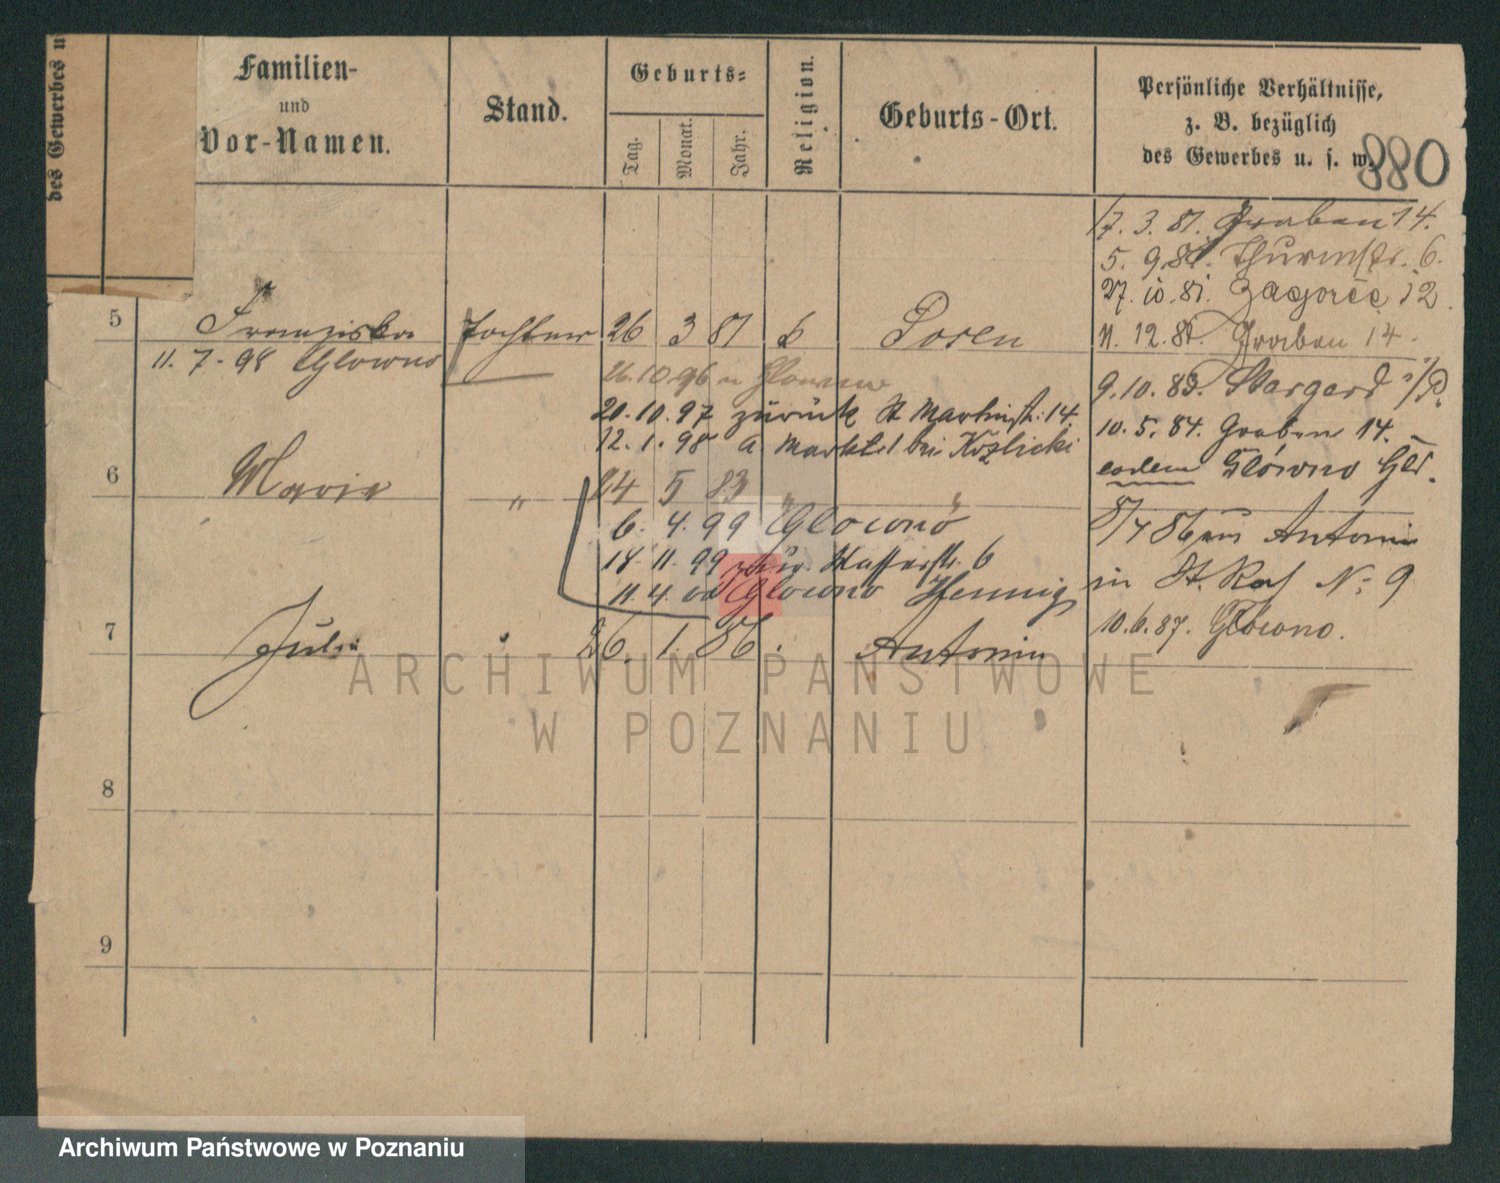 des Gewerbes u
Familien-
und
Vor-Namen.
Stand.
Geburts=
Tag.
Monat.
Jahr.
Religion.
Geburts-Ort.
Persönliche Verhältnisse,
z. B. bezüglich
des Gewerbes u. s. w.
880
17. 3. 81. Graben 14.
5. 9. 81. Thurmstr. 6.
27. 10. 81. Zagorze 12.
5 Franziska Tochter 26 3 81 k Posen
11. 12. 82. Graben 14.
11. 7. 98 Glowno
26. 10. 96 n Glowno
9. 10. 83. Stargard i/P.
20. 10. 97 zurück St Martinstr. 14
10. 5. 84. Graben 14.
12. 1. 98 a Markt 1 bei Kozlicki
eodem Glówno Gld.
6 Marie " 24 5 83 " "
6. 4. 99 Glowno
8/4 86 aus Antonin
18. 11. 99 zur. Wasserstr. 6
in St. Roch N: 9
11. 4. 00 Glowno Hennig
10. 6. 87. Glowno.
7 Julie " 26. 1. 86 . Antonin
8
9
ARCHIWUM PAŃSTWOWE
W POZNANIU
Archiwum Państwowe w Poznaniu